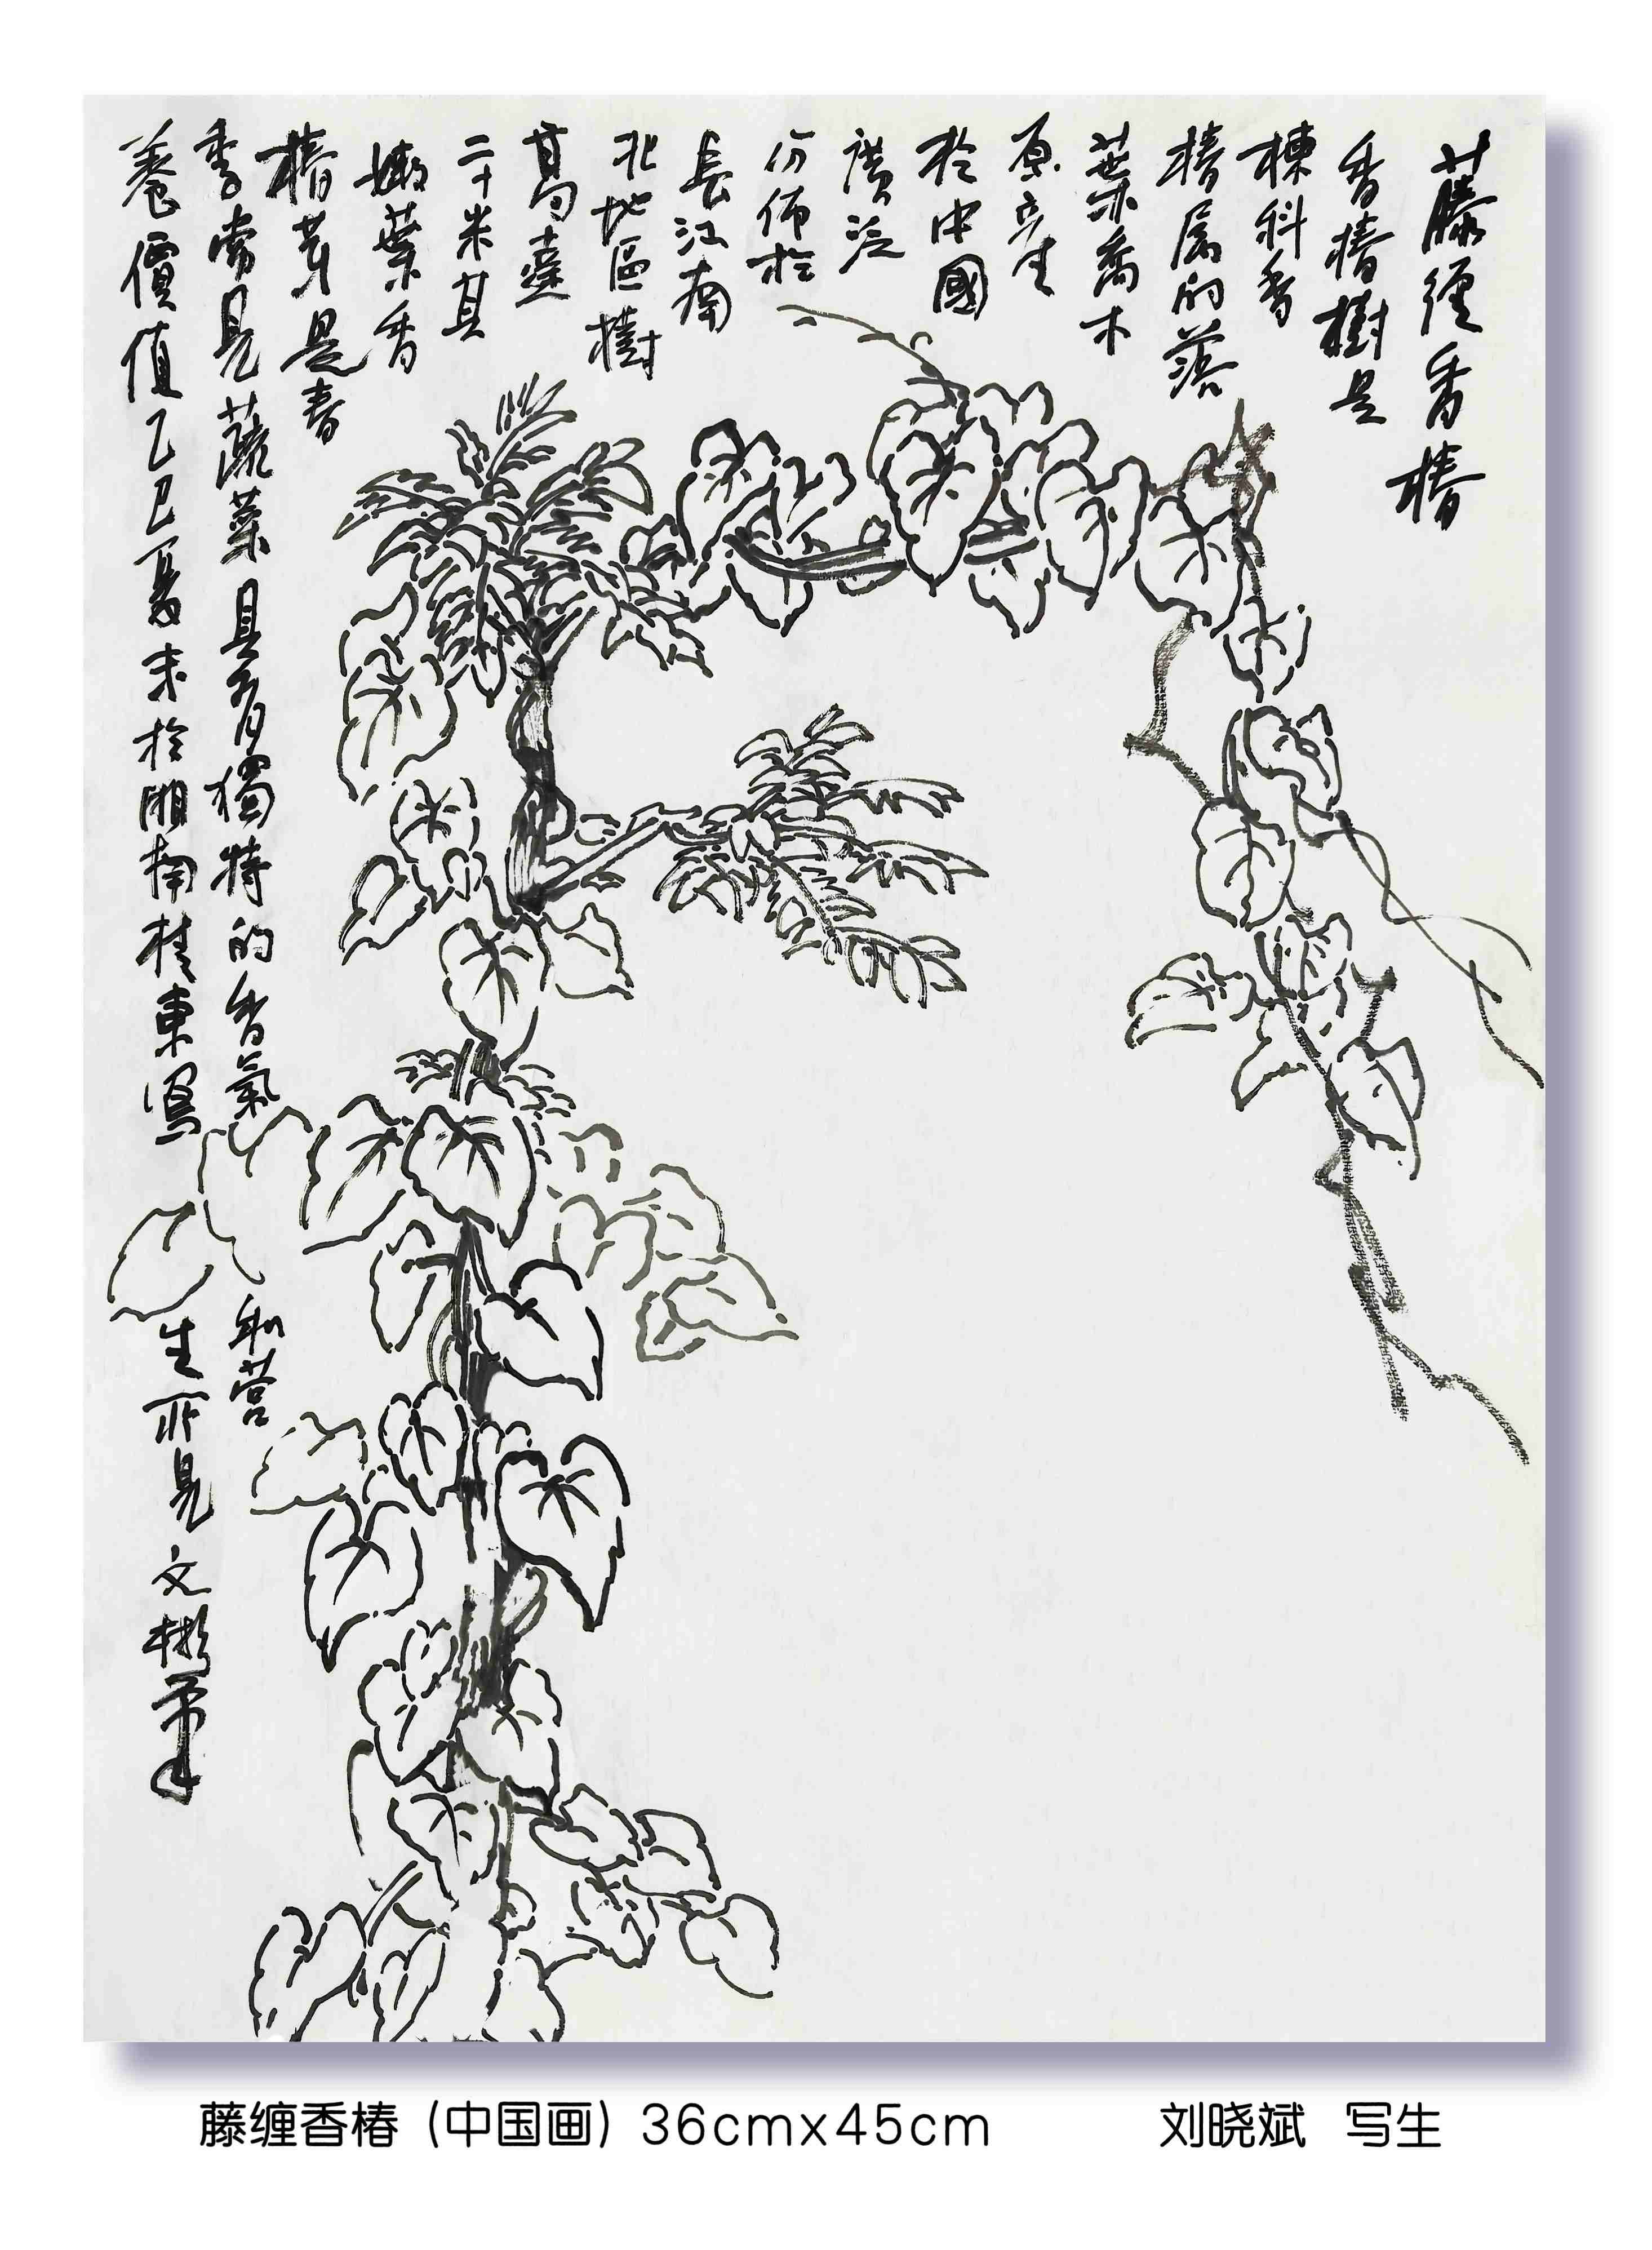 藤缠香椿
香椿樹是
楝科香
椿属的落
葉喬木
原产生
於中國
廣泛
分佈於
長江南
北地區樹
葛高達
二十米其
嫩葉香
椿芽是春
季常見蔬菜具有獨特的香氣和营
養價值乙巳夏末於湘南桂東寫生所見文彬筆
藤缠香椿（中国画）36cmx45cm 刘晓斌 写生